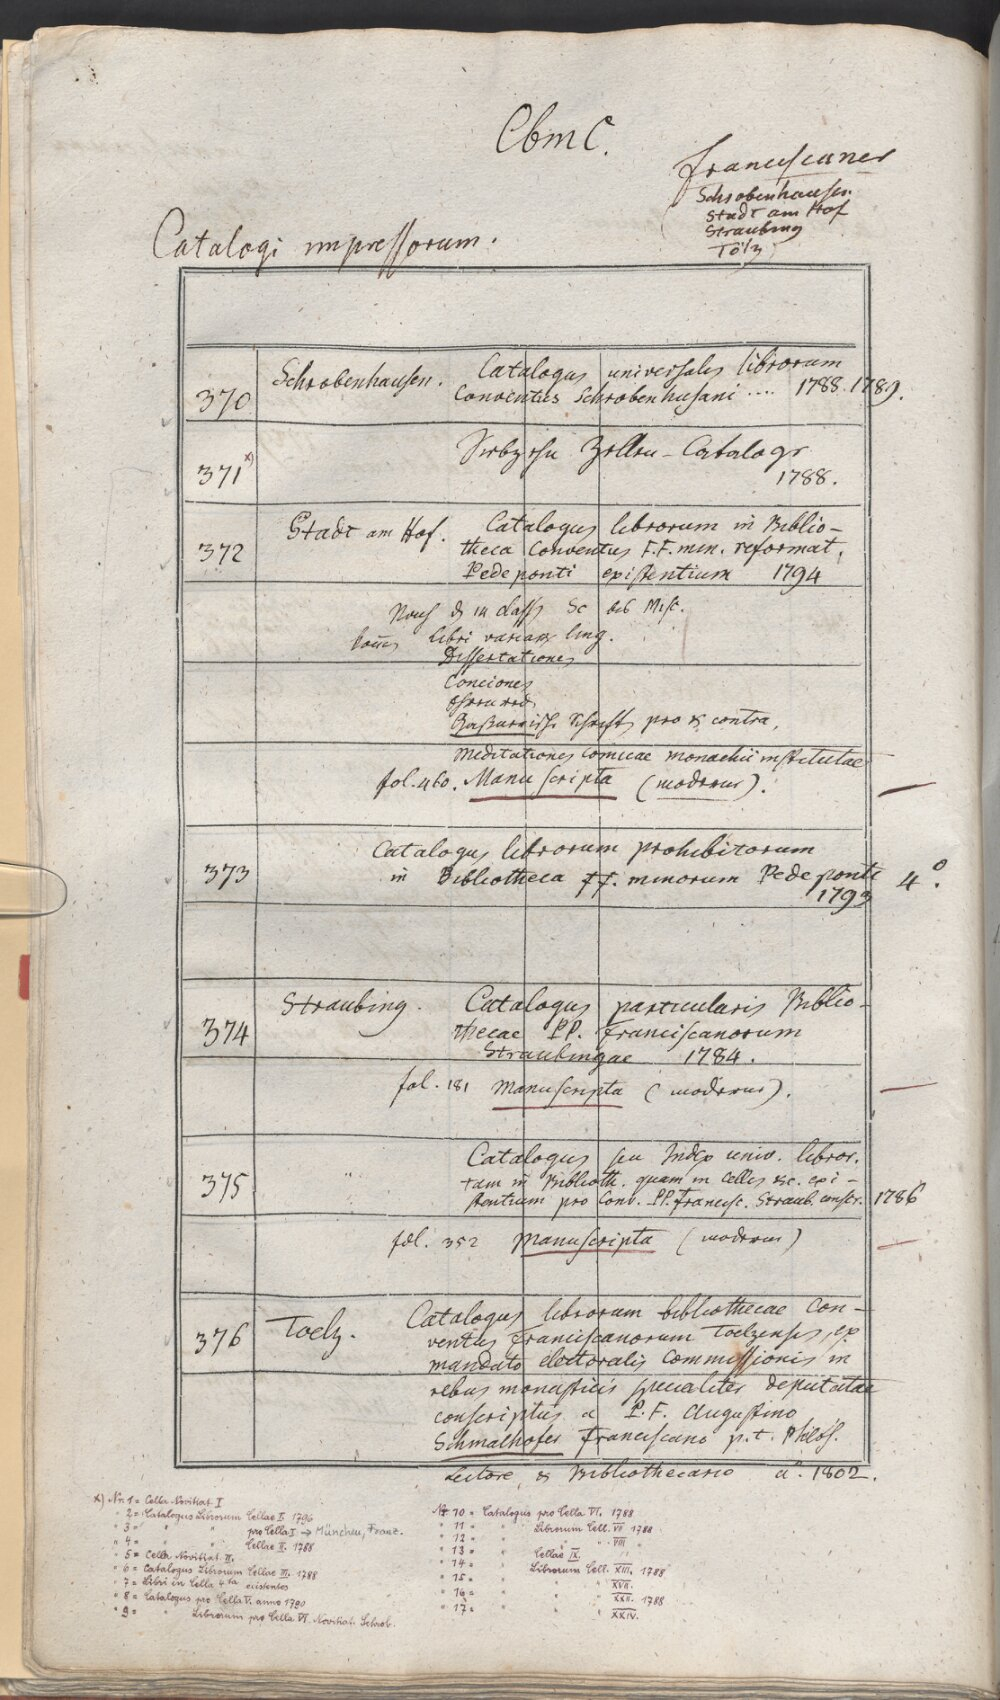 Cbm C.
Franciscaner
Schrobenhausen.
Stadt am Hof
Straubing
Tölz
Catalogi impressorum.
370 Schrobenhausen. Catalogus universalis librorum
Conventus Schrobenhusani .... 1788. 1789.
371 x) Zellen-Catalogr
1788.
372 Stadt am Hof. Catalogus librorum in Biblio-
theca Conventus F.F. min. reformat.
Pedeponti existentium 1794
14 Class
libri variar. ling.
Dissertationes
Conciones
pro & contra,
Meditationes comicae monachii institutae
fol. 460. Manuscripta (moderns).
373 Catalogus librorum prohibitorum
in Bibliotheca FF. minorum Pedeponti 4°.
1793
374 Straubing. Catalogus particularis Biblio-
thecae PP. Franciscanorum
Straubingae 1784.
fol. 181 Manuscripta (moderns).
375 " Catalogus seu Index univ. libror.
tam in Biblioth. quam in Cellis &c. exi-
stentium pro Conv. PP. Francisc. Straub. conscr. 1786
fol. 352 Manuscripta (moderns)
376 Toelz. Catalogus librorum bibliothecae Con-
ventus Franciscanorum Toelzensis, ex
mandato electoralis Commissionis in
rebus monasticis specialiter deputatae
conscriptus a P. F. Augustino
Schmalhofer Franciscano p. t. Philos.
Lectore & Bibliothecario a°. 1802.
x) Nr. 1 = Cella Novitiat. I
" 2 = Catalogus Librorum Cellae I. 1796
" 3 = " " pro Cella I → München, Franz.
" 4 = " " Cellae II. 1788
" 5 = Cella Novitiat. II.
" 6 = Catalogus Librorum Cellae III. 1788
" 7 = Libri in Cella 4ta existentes
" 8 = Catalogus pro Cella V. anno 1790
" 9 = " Librorum pro Cella VI. Novitiat. Schrob.
Nr. 10 = Catalogus pro Cella VI. 1788
" 11 = " Librorum Cell. VII 1788
" 12 = " " " VIII "
" 13 = " Cellae IX.
" 14 = " Librorum Cell. XIII. 1788
" 15 = " " " XVII.
" 16 = " " " XXII. 1788
" 17 = " " " XXIV.